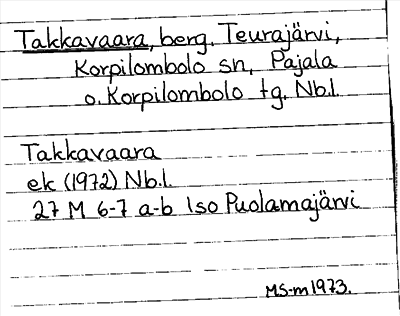 Takkavaara, berg. Teurajärvi,
Korpilombolo sn, Pajala
o. Korpilombolo tg. Nb.l.
Takkavaara
ek (1972) Nb.l.
27 M 6-7 a-b Iso Puolamajärvi
MS-m 1973.